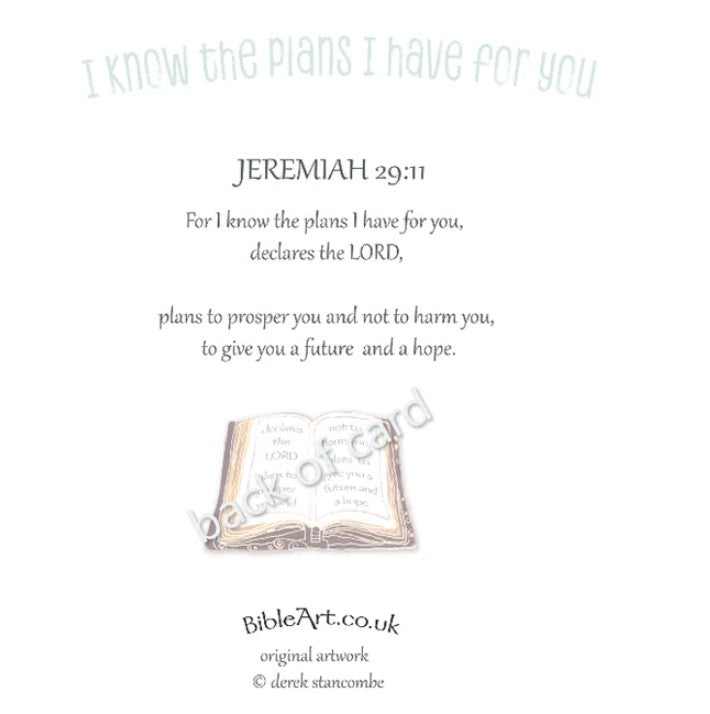 I know the plans I have for you
JEREMIAH 29:11
For I know the plans I have for you,
declares the LORD,
plans to prosper you and not to harm you,
to give you a future and a hope.
declares
the
LORD
plans to
prosper
not to
harm you,
plans to
give you a
future and
a hope
back of card
BibleArt.co.uk
original artwork
© derek stancombe